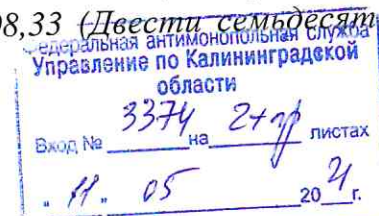 08,33 (Двести семьдесят
Федеральная антимонопольная служба
Управление по Калининградской
области
Вход № 3374 на 2+пр листах
" 11 " 05 2021 г.